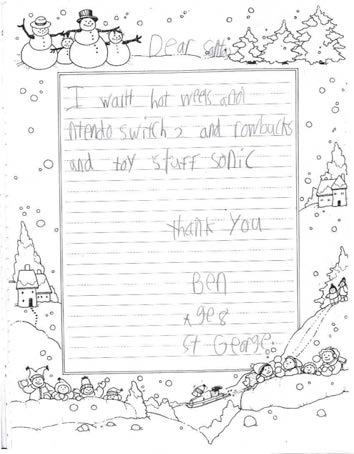 Dear Santa
I want hot weels and
ntendo switch 2 and rowbucks
and toy stuff sonic
thank you
Ben
Age 8
St George